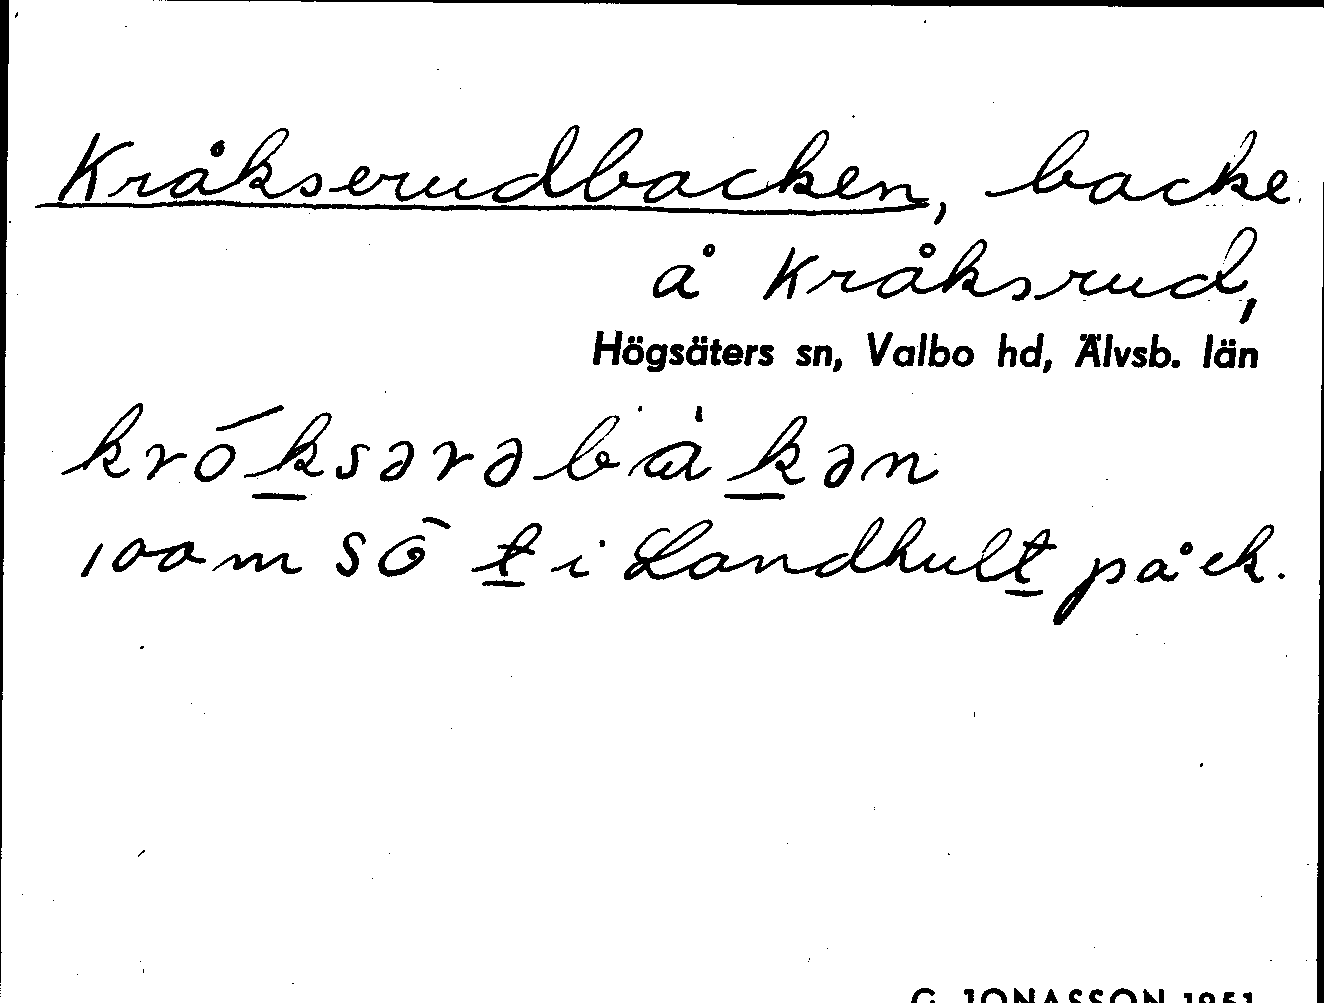 Kråkserudbacken, backe
å Kråksrud,
Högsäters sn, Valbo hd, Älvsb. län
króksərəbàkən
100 m SÖ t i Landhult på ek.
G. JONASSON 1951